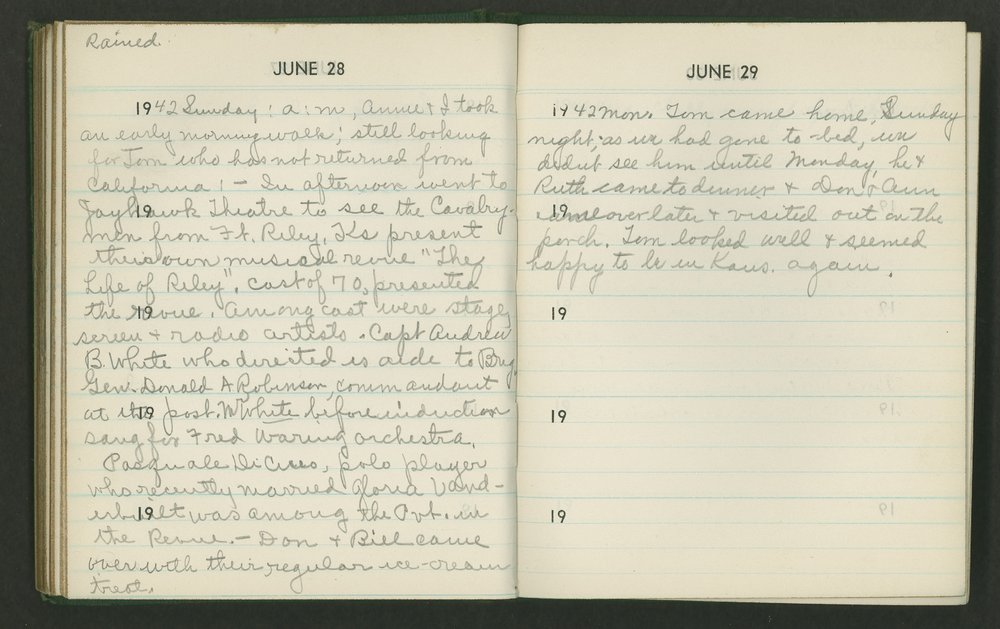 Rained.
JUNE 28
1942 Sunday: a:m, Annie & I took
an early morning walk; still looking
for Tom who has not returned from
California! - In afternoon went to
Jayhawk Theatre to see the Cavalry-
19
men from Ft. Riley, Ks present
their own musical revue "The
Life of Riley", cast of 70, presented
the revue. Among cast were stage,
19
screen & radio artists. Capt Andrew
B. White who directed is aide to Brig.
Gen. Donald A Robinson, commandant
at the post. Mr White before induction
19
sang for Fred Waring orchestra.
Pasquale Di Cicco, polo player
who recently married Gloria Vand-
erbuilt was among the Pvt. in
19
the Revue. - Don & Bill came
over with their regular ice-cream
treat.
JUNE 29
1942 Mon. Tom came home, Sunday
night; as we had gone to bed, we
didn't see him until Monday, he &
Ruth came to dinner & Don & Ann
came over later & visited out on the
19
porch. Tom looked well & seemed
happy to be in Kans. again.
19
19
19